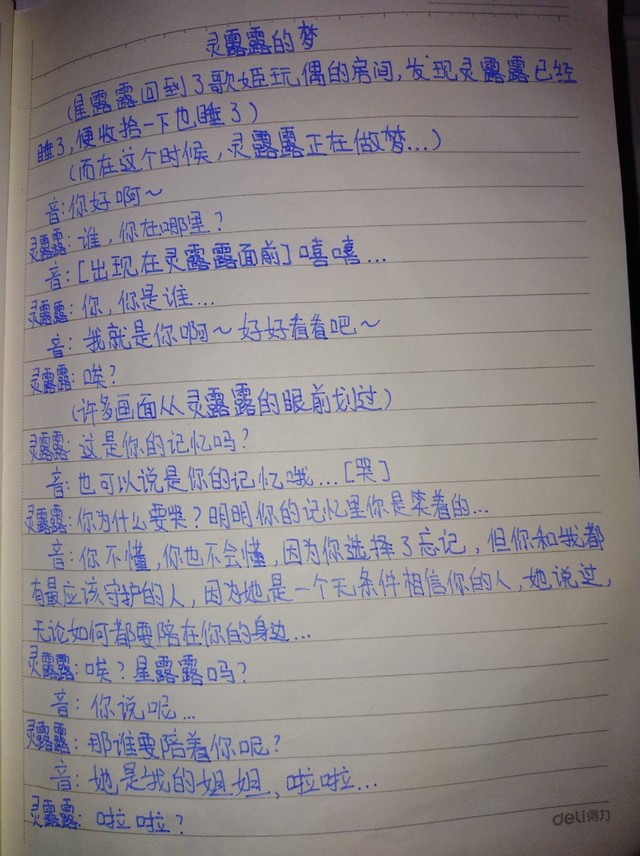 灵露露的梦
(星露露回到了歌姬玩偶的房间,发现灵露露已经
睡了,便收拾一下也睡了)
(而在这个时候,灵露露正在做梦...)
音:你好啊～
灵露露:谁,你在哪里?
音:[出现在灵露露面前]嘻嘻...
灵露露:你,你是谁...
音:我就是你啊～好好看看吧～
灵露露:唉?
(许多画面从灵露露的眼前划过)
灵露露:这是你的记忆吗?
音:也可以说是你的记忆哦...[哭]
灵露露:你为什么要哭?明明你的记忆里你是笑着的...
音:你不懂,你也不会懂,因为你选择了忘记,但你和我都
有最应该守护的人,因为她是一个无条件相信你的人,她说过,
无论如何都要陪在你的身边...
灵露露:唉?星露露吗?
音:你说呢...
灵露露:那谁要陪着你呢?
音:她是我的姐姐,啦啦...
灵露露:啦啦?
deli得力